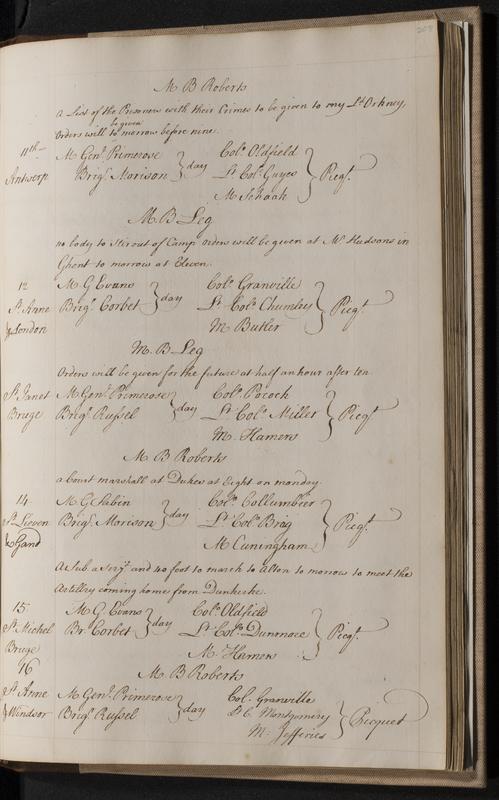 M B Roberts
A List of the Prisoners with their Crimes to be given to my Ld Orkney,
be given
Orders will to morrow before nine.
11th
Antwerp
M Genl. Primerose
Brigr. Morison
day
Colo. Oldfield
Lt Colo. Guyes
M. Schaak
Picqt.
M. B Leg
no body to Stir out of Camp orders will be given at Mr. Hudsons in
Ghent to morrow at Eleven.
12
St. Anne
& London
M. G Evans
Brigr. Corbet
day
Colo. Granville
Lt. Colo. Chumley
M Butler
Picqt.
M. B Leg
Orders will be given for the future at half an hour after ten
St. Janet
Bruge
M Genl. Primerose
Brigr. Russel
day
Colo. Pocock
Lt. Colo. Miller
M. Hamers
Picqt.
M B Roberts
a Court marshall at Dukes at Eight on monday
14
St. Lieven
& Gand
M G Sabin
Brigr. Morison
day
Colo. Collumbier
Lt Colo. Brag
M Cuningham
Picqt.
A Sub a Serjt and 40 foot to march to Alton to morrow to meet the
Artillery coming home from Dunkirke.
15
St. Michel
Bruge
M. G Evans
Br. Corbet
day
Colo. Oldfield
Lt. Colo. Dunmore
M. Hamers
Picqt.
M B Roberts
16
St Anne
& Windsor
M Genl. Primerose
Brigr. Russel
day
Col. Granville
Lt C. Montgomery
M. Jefferies
Picquet